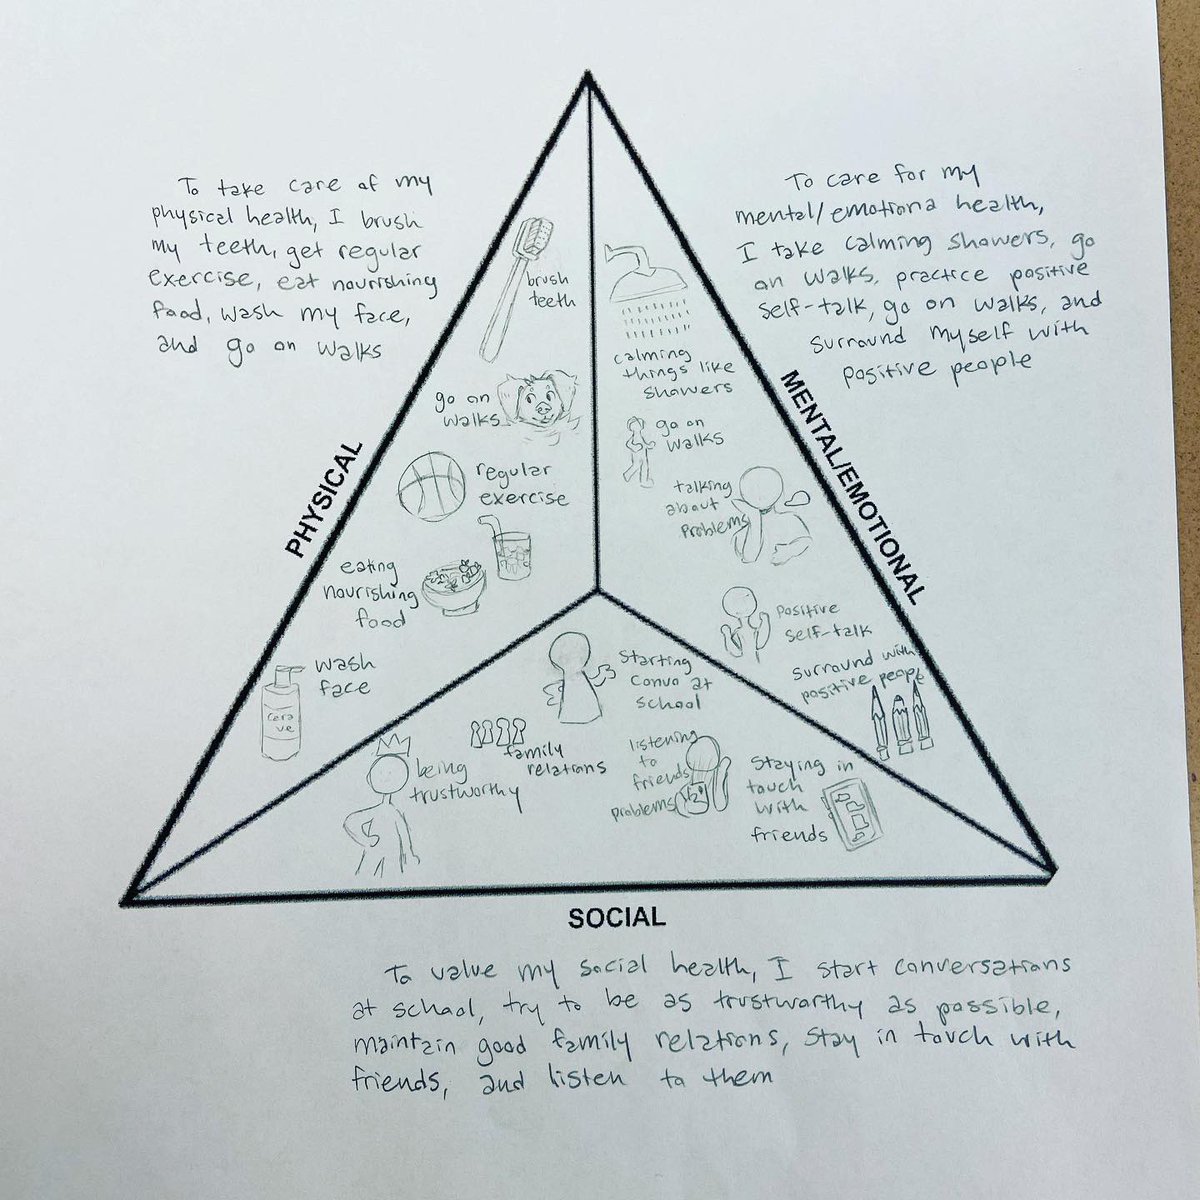 To take care of my
physical health, I brush
my teeth, get regular
exercise, eat nourishing
food, wash my face,
and go on walks
To care for my
mental/emotiona health,
I take calming showers, go
on walks, practice positive
self-talk, go on walks, and
surround myself with
positive people
PHYSICAL
brush
teeth
go on
walks
regular
exercise
eating
nourishing
food
wash
face
Cera
ve
MENTAL/EMOTIONAL
calming
things like
showers
go on
walks
talking
about
problems
positive
self-talk
surround with
positive peope
starting
convo at
school
family
relations
being
trustworthy
listening
to
friends
problems
staying in
touch
with
friends
SOCIAL
To value my social health, I start conversations
at school, try to be as trustworthy as possible,
maintain good family relations, stay in touch with
friends, and listen to them